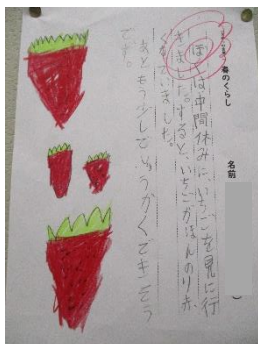 春のくらし
名前
ぼくは中間休みに、いちごを見に行
きました。すると、いちごがほんのり赤
くなっていました。
あともう少しでしゅうかくできそう
です。